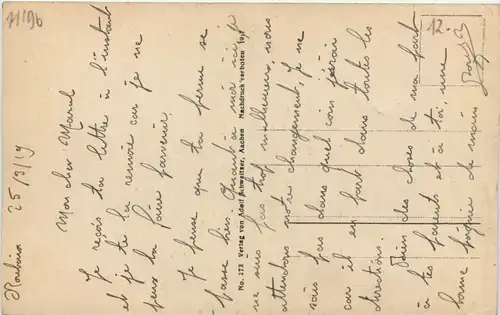 71/96
12.-
25/3/19
Mon cher Marcel
Je reçois ta lettre à l'instant
et je te la renvoie car je ne
peux la faire parvenir.
Je pense que ta perme se
passe bien. Quant à moi ici je
ne suis pas trop malheureux, nous
attendons notre changement, je ne
sais pas dans quel coin j'irai
car il en part dans toutes les
directions.
Bien des choses de ma part
à tes parents et à toi, une
bonne poignée de mains
No. 173 Verlag von Adolf Schweitzer, Aachen Nachdruck verboten